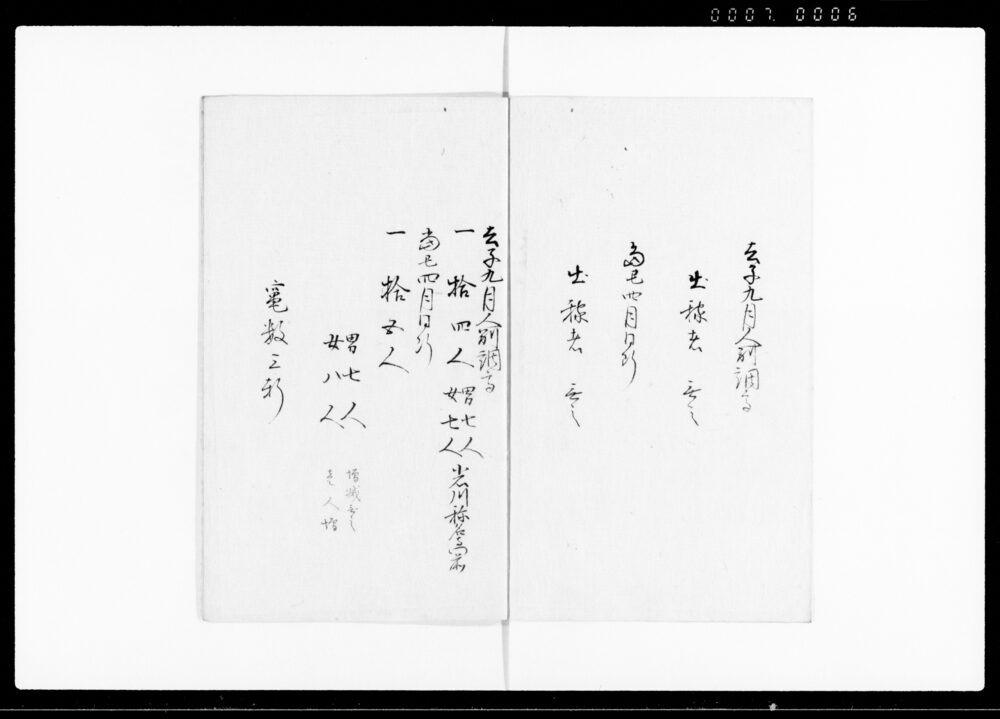 0007 0006
去子九月人別調高
出稼者 無之
当巳四月同断
出稼者 無之
去子九月人別調高
一 拾四人 男七人 女七人 小石川
当巳四月同断
一 拾五人
男七人 増減無之
女八人 人増
竃数三軒